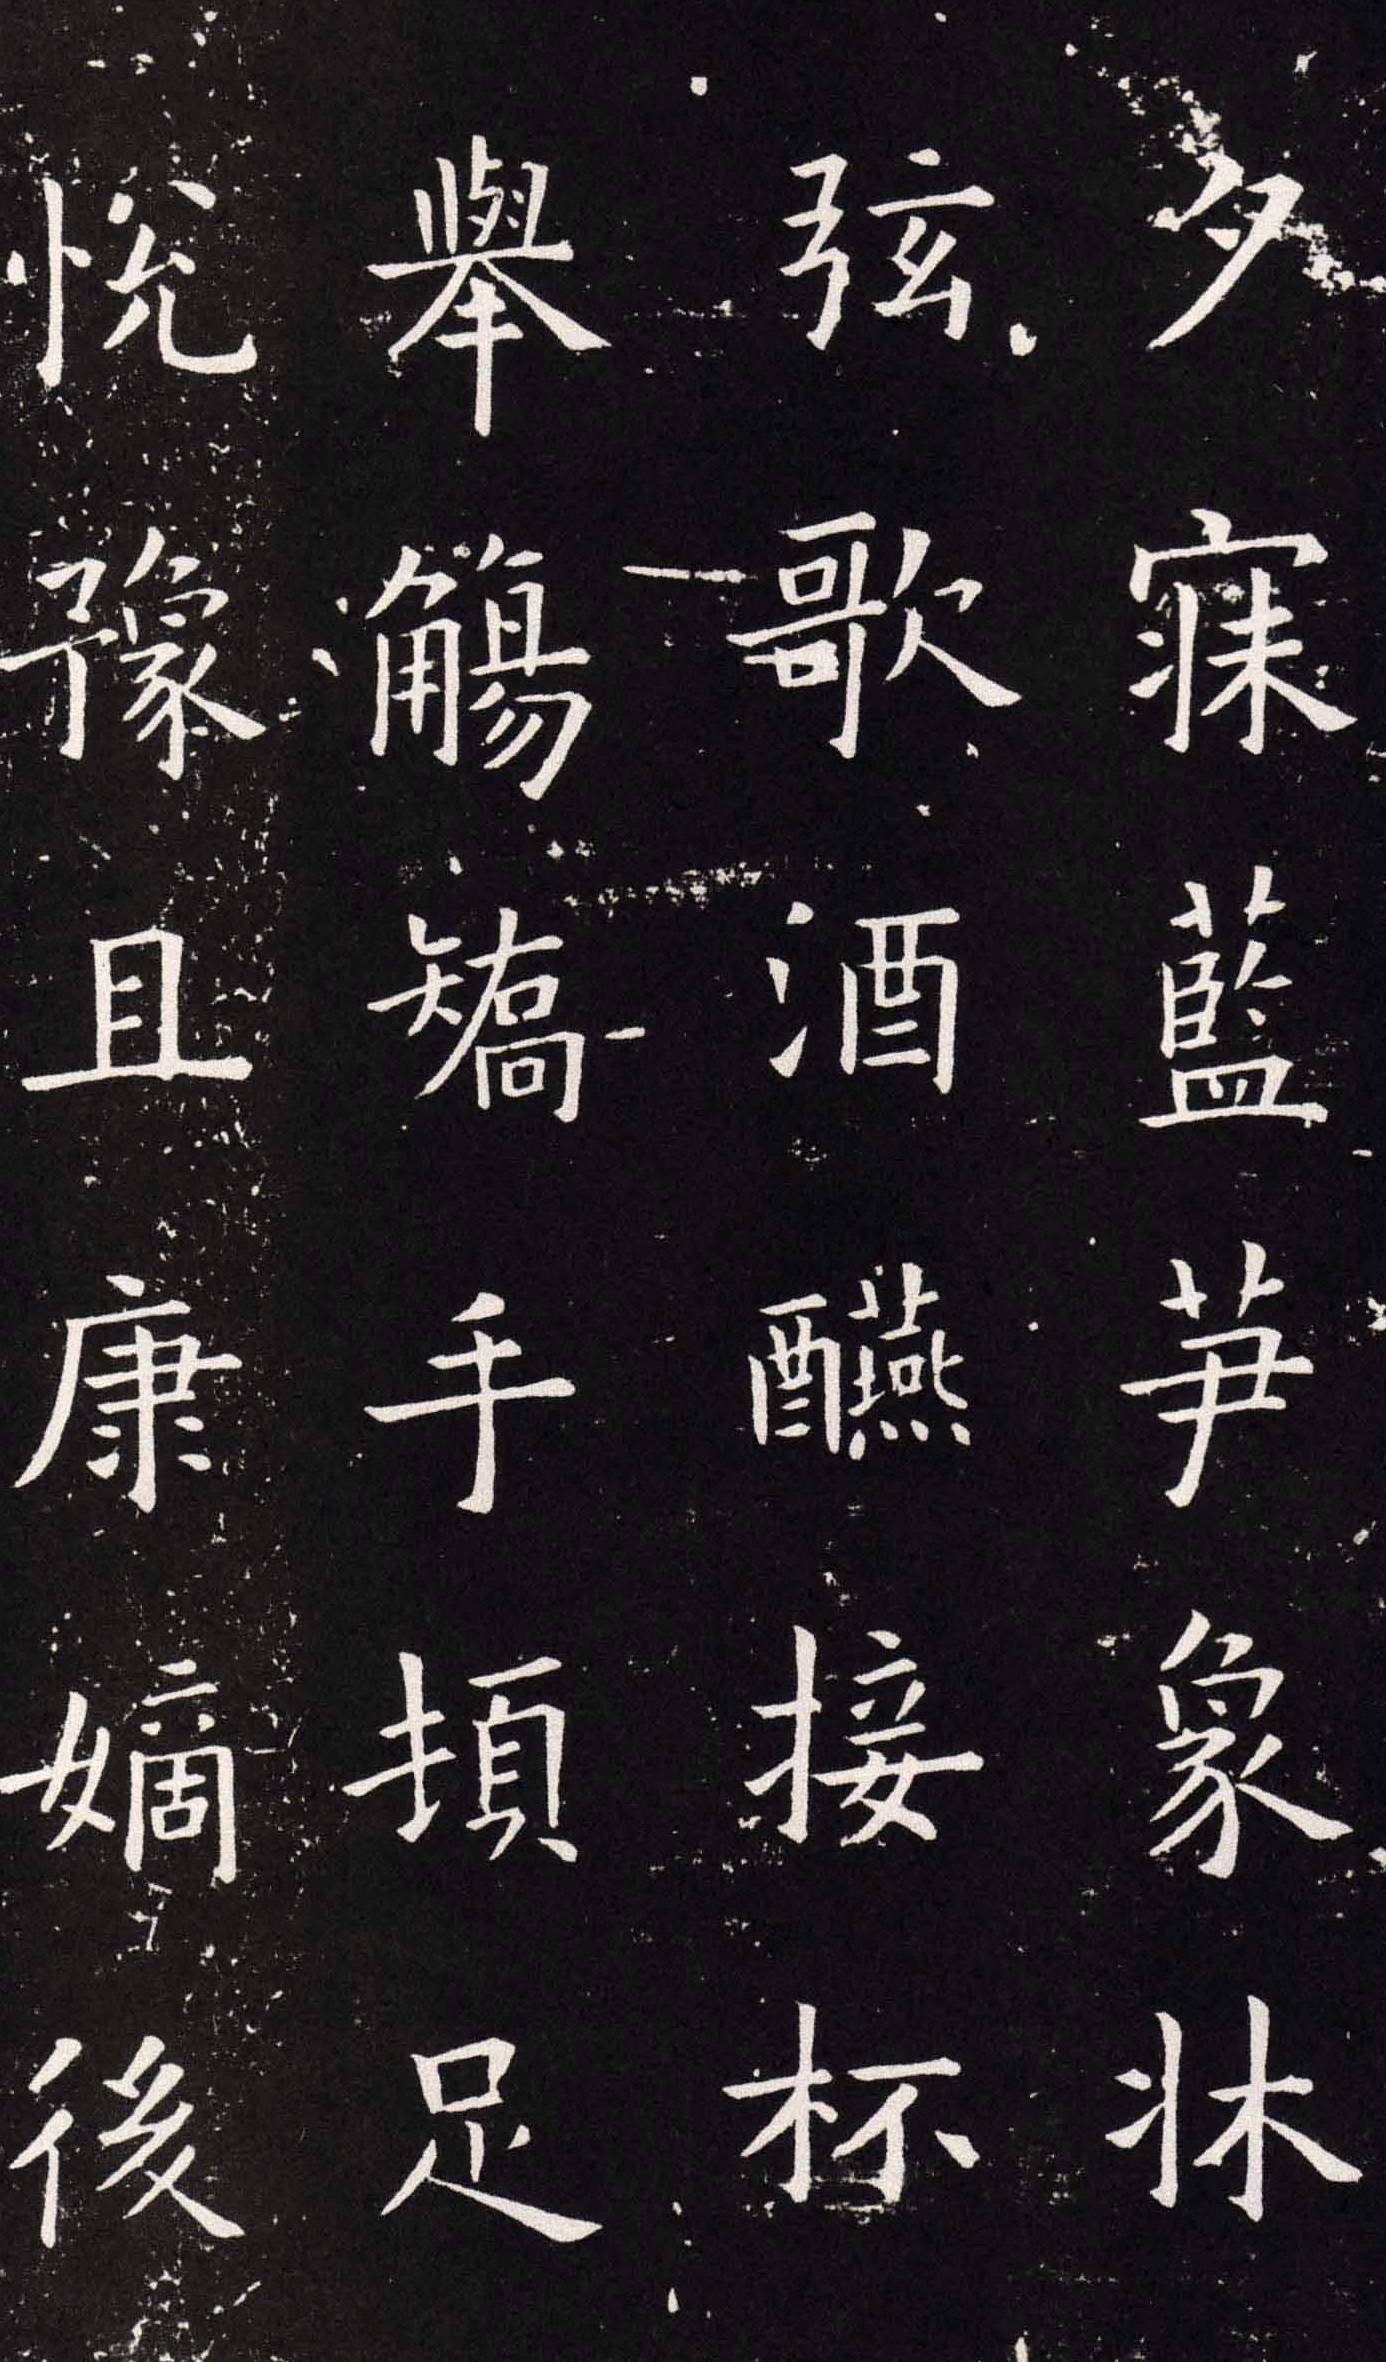 夕寐藍芛象牀
弦歌酒醼接杯
舉觴矯手頓足
悅豫且康嫡後